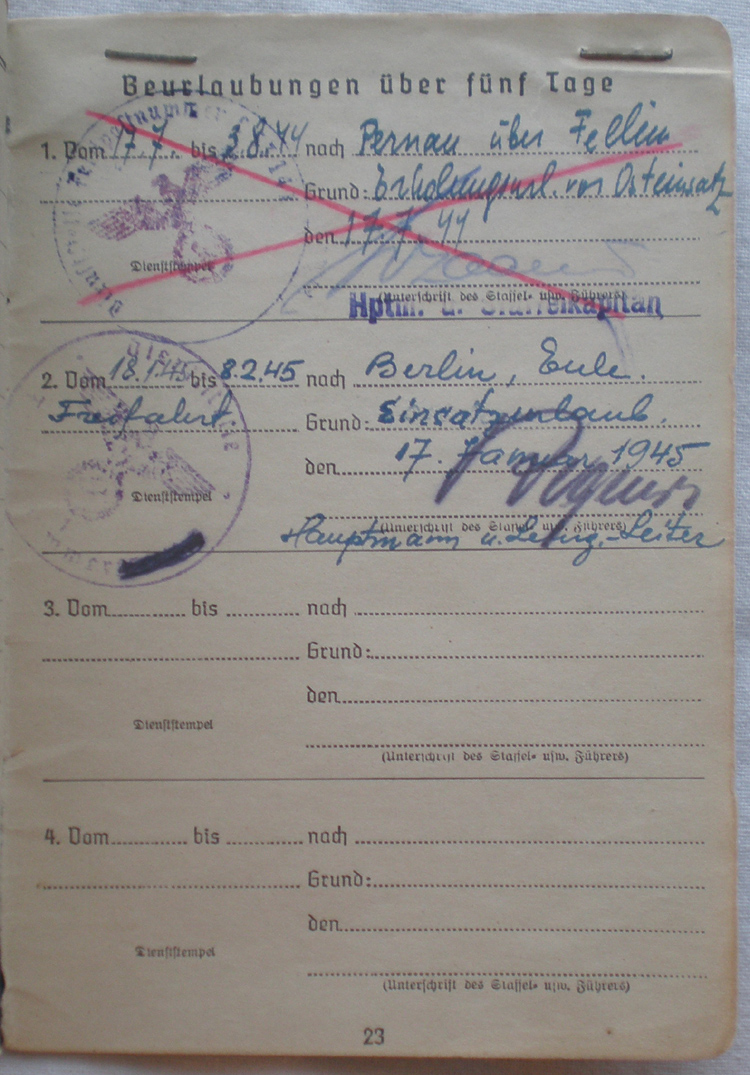 Beurlaubungen über fünf Tage
1. Vom 17.7. bis 3.8.44 nach Pernau über Fellin
Grund: Erholungsurl. von Osteinsatz
den 17.7.44
Dienststempel
(Unterschrift des Staffel- usw. Führers)
Hptm. u. Staffelkapitän
2. Vom 18.1.45 bis 8.2.45 nach Berlin, Eule.
Freifahrt Grund: Einsatzurlaub.
den 17. Januar 1945
Dienststempel
(Unterschrift des Staffel- usw. Führers)
Hauptmann u. Lehrg.-Leiter
3. Vom bis nach
Grund:
den
Dienststempel
(Unterschrift des Staffel- usw. Führers)
4. Vom bis nach
Grund:
den
Dienststempel
(Unterschrift des Staffel- usw. Führers)
23